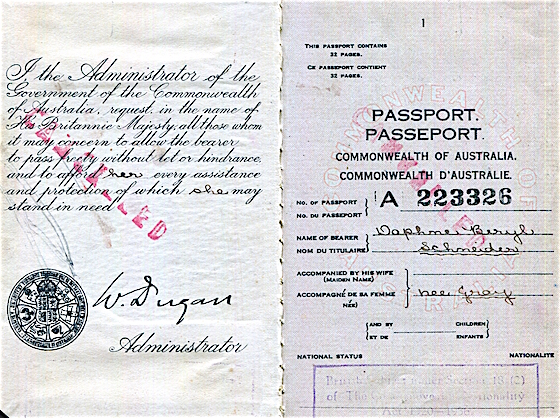 I, the Administrator of the
Government of the Commonwealth
of Australia, request, in the name of
His Britannic Majesty, all those whom
it may concern to allow the bearer
to pass freely without let or hindrance,
and to afford her every assistance
and protection of which she may
stand in need
CANCELLED
W. Dugan
Administrator
1
THIS PASSPORT CONTAINS
32 PAGES.
CE PASSEPORT CONTIENT
32 PAGES.
PASSPORT.
PASSEPORT.
COMMONWEALTH OF AUSTRALIA.
COMMONWEALTH D'AUSTRALIE.
NO. OF PASSPORT
NO. DU PASSEPORT
A 223326
NAME OF BEARER
NOM DU TITULAIRE
Daphne Beryl
Schneider
ACCOMPANIED BY HIS WIFE
(MAIDEN NAME)
ACCOMPAGNÉ DE SA FEMME
NÉE)
nee Gray
AND BY CHILDREN
ET DE ENFANTS
NATIONAL STATUS NATIONALITÉ
British Subject under Section 18 (2)
of The Nationality